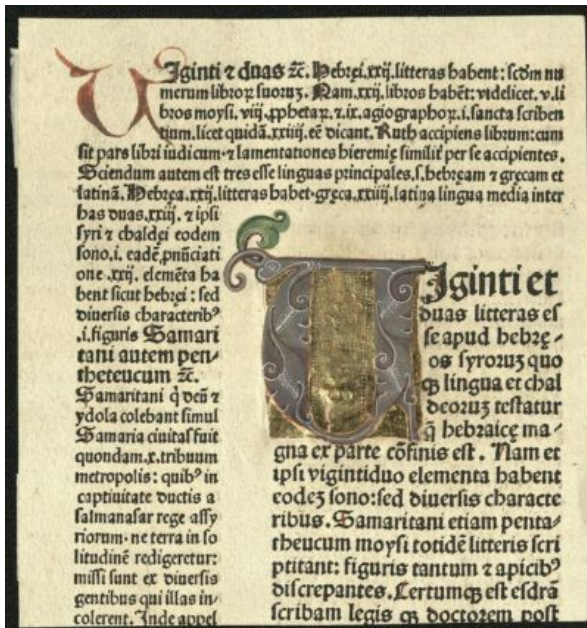 Uiginti ⁊ duas ⁊c̄. Hebręi.xxij.litteras habent: scd̄m nu
merum libroꝝ suoruꝫ. Nam.xxij.libros habēt: videlicet.v.li
bros moysi.viij.ꝓphetaꝝ.⁊.ix.agiographoꝝ.i.sancta scriben
tium.licet quidā.xxiiij.eē dicant. Ruth accipiens librum: cum
sit pars libri iudicum·⁊ lamentationes hieremię similiť per se accipientes.
Sciendum autem est tres esse linguas principales.s.hebręam ⁊ gręcam et
latinā. Hebręa.xxij.litteras habet·gręca.xxiiij.latina lingua media inter
has duas.xxiij.⁊ ipsi
syri ⁊ chaldęi eodem
sono.i. eadē.pnūciati
one .xxij. elemēta ha
bent sicut hebręi: sed
diuersis characteribꝰ
.i.figuris Samari
tani autem pen-
theteucum ⁊c̄.
Samaritani q̇ deū ⁊
ydola colebant simul
Samaria ciuitas fuit
quondam.x.tribuum
metropolis: quibꝰ in
captiuitate ductis a
salmanasar rege assy
riorum·ne terra in so
litudinē redigeretur:
missi sunt ex diuersis
gentibus qui illas in-
colerent. Inde appel
UIginti et
duas litteras es
se apud hebrę-
os syroruꝫ quo
qꝫ lingua et chal
deoruꝫ testatur
q̄ hebraicę ma-
gna ex parte cōfinis est. Nam et
ipsi vigintiduo elementa habent
eodeꝫ sono:sed diuersis characte
ribus. Samaritani etiam penta-
theucum moysi totidē litteris scri
ptitant: figuris tantum ⁊ apicibꝰ
discrepantes. Certumqꝫ est esdrā
scribam legis qꝫ doctorem post